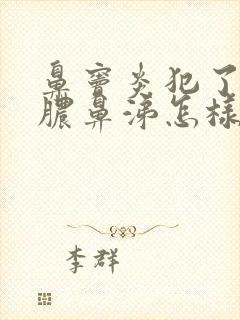 鼻窦炎犯了
脓鼻涕怎样
李群